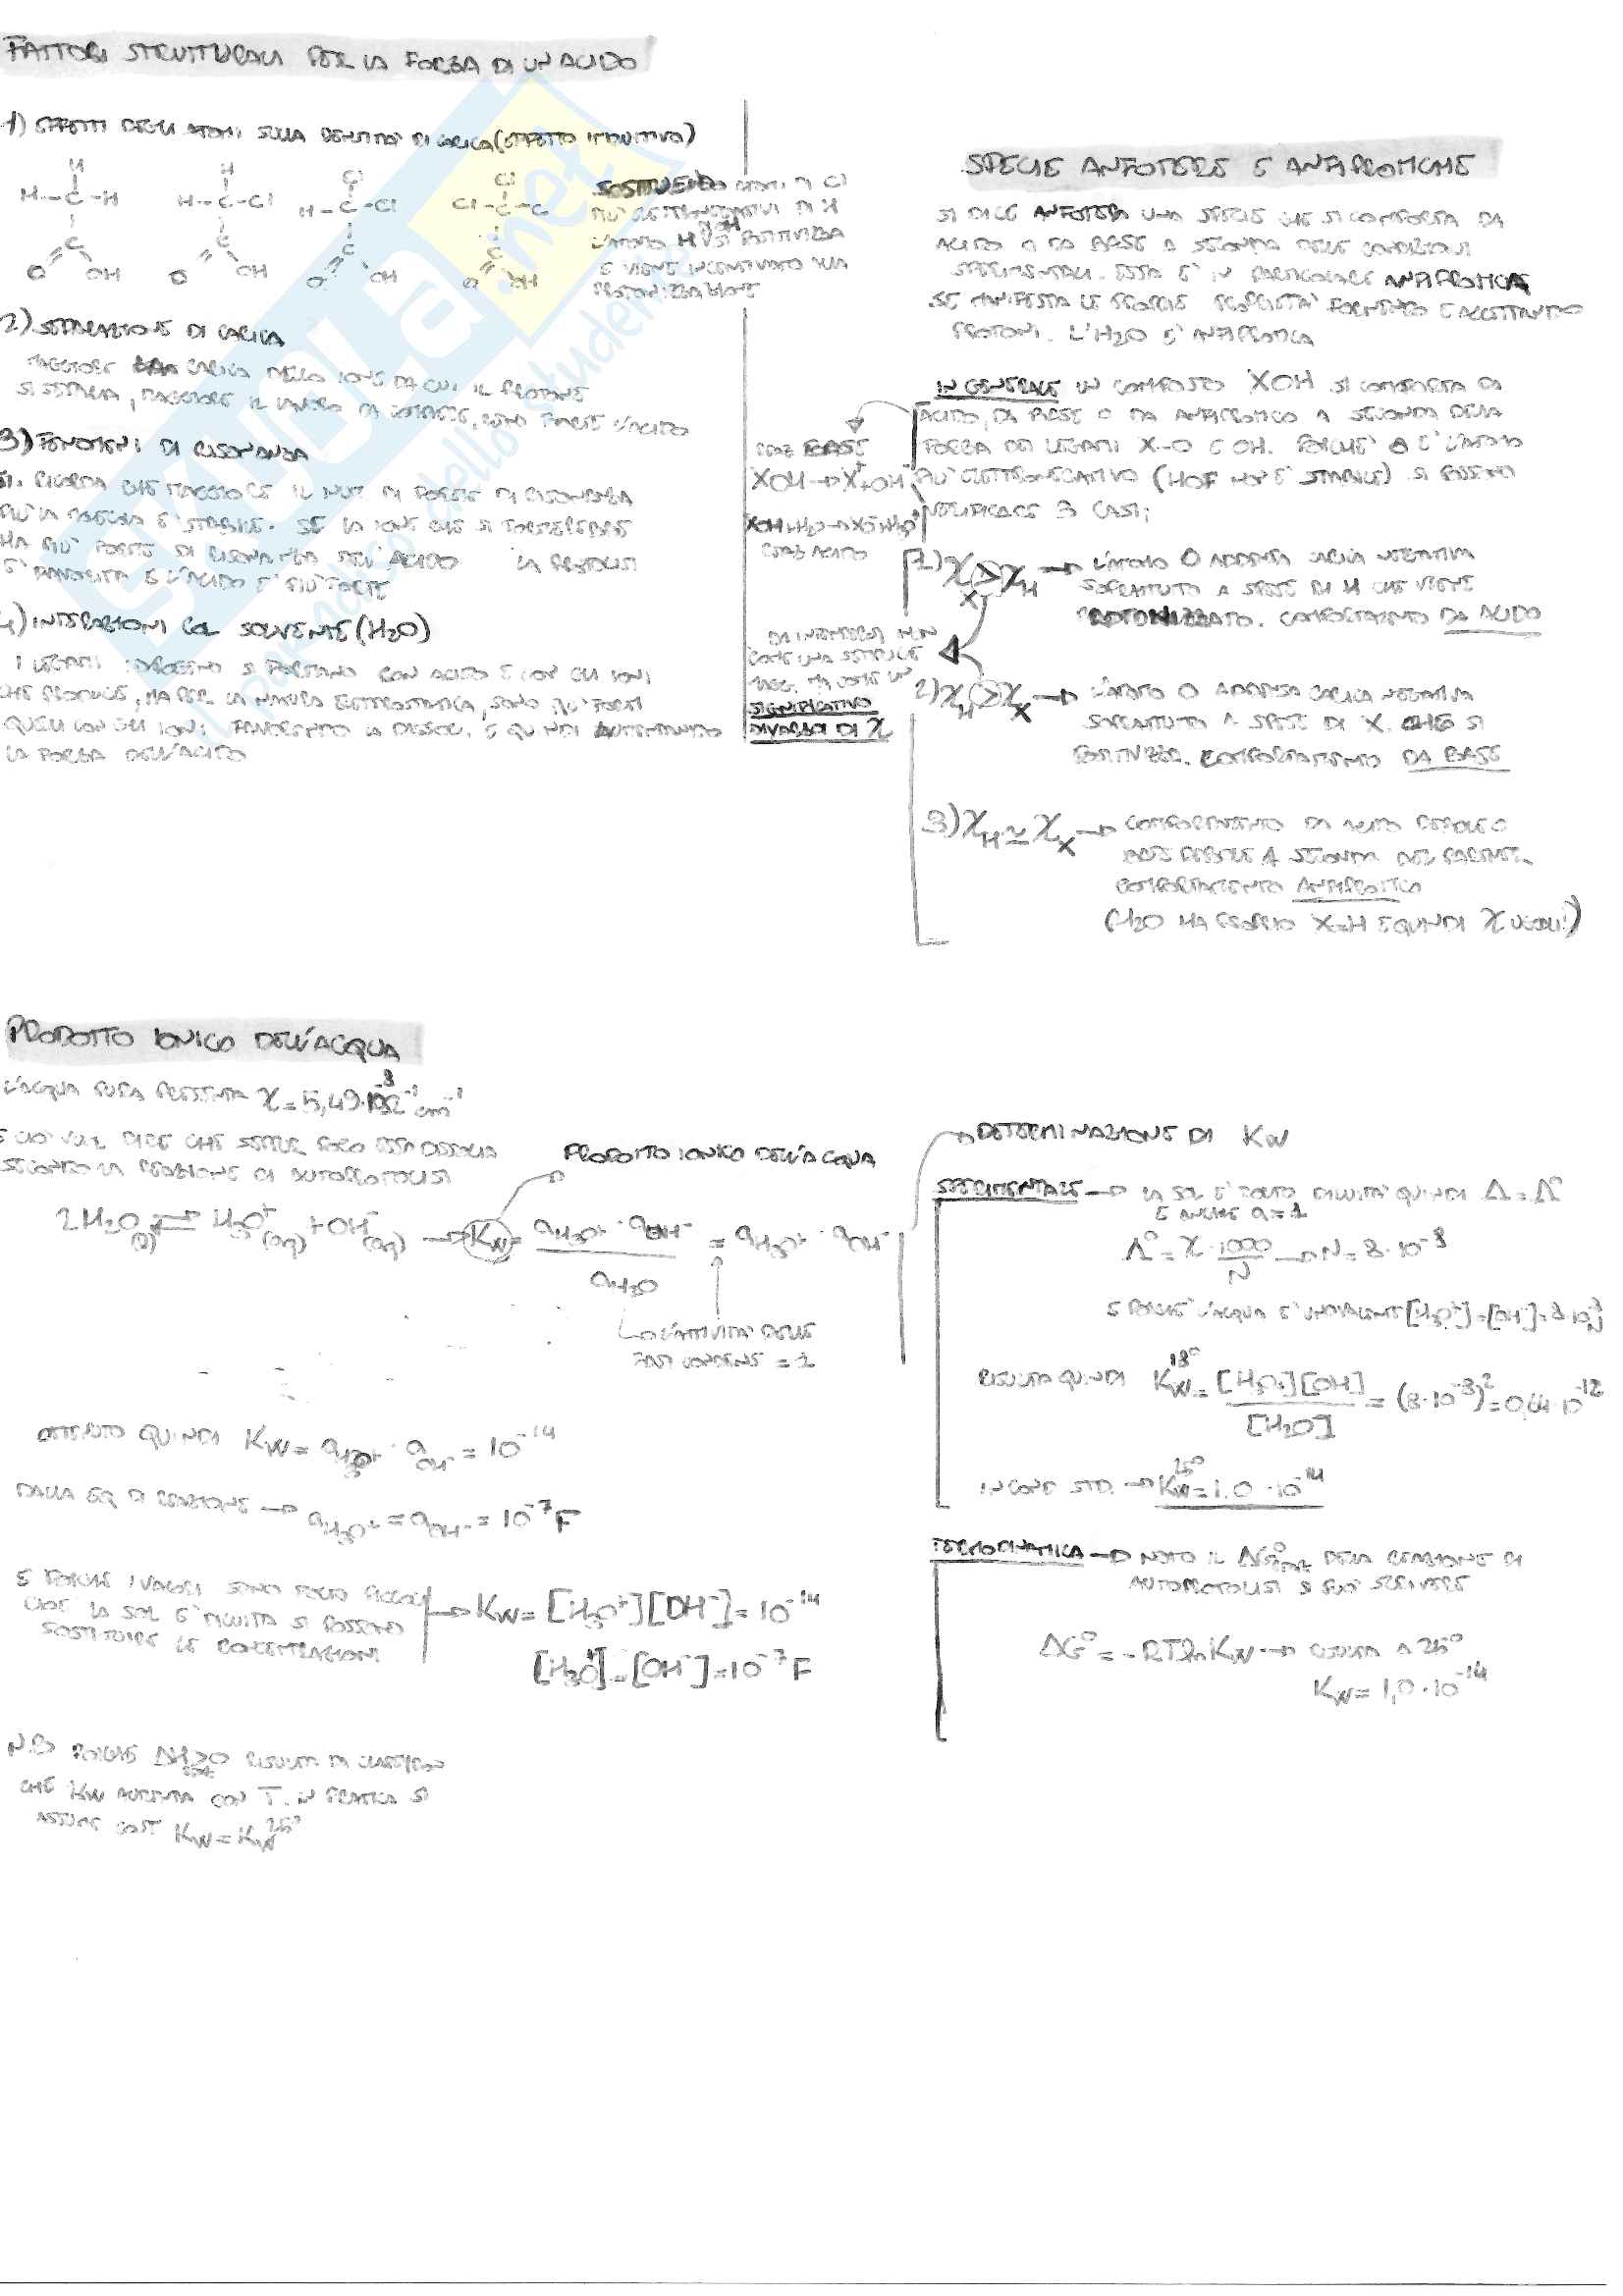 FATTORI STRUTTURALI PER LA FORZA DI UN ACIDO
1) EFFETTI DEGLI ATOMI SULLA DENSITÀ DI CARICA (EFFETTO INDUTTIVO)
H H Cl Cl
H-C-H H-C-Cl H-C-Cl Cl-C-C
C C C C
O OH O OH O OH O OH
SOSTITUENDO ATOMI DI Cl
PIÙ ELETTRONEGATIVI DI H
L'ATOMO H SI POSITIVIZZA
E VIENE INCENTIVATO
PROTONIZZAZIONE
2) SEPARAZIONE DI CARICA
MAGGIORE CARICA DELLO IONE DA CUI IL PROTONE
SI SEPARA, MAGGIORE IL LAVORO DI, MENO FORTE L'ACIDO
3) FENOMENI DI RISONANZA
SI RICORDA CHE MAGGIORE IL NUM. DI FORME DI RISONANZA
PIÙ LA SPECIE È STABILE. SE LO IONE CHE SI FORMEREBBE
HA PIÙ FORME DI RISONANZA DELL'ACIDO LA PROTOLISI
E' FAVORITA E L'ACIDO E' PIÙ FORTE
4) INTERAZIONI COL SOLVENTE (H2O)
I LEGAMI IDROGENO SI FORMANO CON ACIDO E CON GLI IONI
CHE PRODUCE, MA PER LA NATURA ELETTROSTATICA, SONO PIÙ FORTI
QUELLI CON GLI IONI: FAVORENDO LA DISSOC. E QUINDI AUMENTANDO
LA FORZA DELL'ACIDO
SPECIE ANFOTERE E ANFIPROTICHE
SI DICE ANFOTERA UNA SPECIE CHE SI COMPORTA DA
ACIDO O DA BASE A SECONDA DELLE CONDIZIONI
SPERIMENTALI. ESSA E' IN PARTICOLARE ANFIPROTICA
SE MANIFESTA LE PROPRIE PROPRIETÀ FORNENDO E ACCETTANDO
PROTONI. L'H2O E' ANFIPROTICA
IN GENERALE UN COMPOSTO XOH SI COMPORTA DA
ACIDO, DA BASE O DA ANFIPROTICO A SECONDA DELLA
FORZA DEI LEGAMI X-O E OH. POICHE' O E' L'ATOMO
PIÙ ELETTRONEGATIVO (HOF NON E' STABILE) SI POSSONO
VERIFICARE 3 CASI:
BASE
XOH → X⁺+OH⁻
XOH+H2O → XO⁻+H3O⁺
ACIDO
1) χX > χH → L'ATOMO O ADDENSA CARICA NEGATIVA
SOPRATTUTTO A SPESE DI H CHE VIENE
PROTONIZZATO. COMPORTAMENTO DA ACIDO
DA INTENDERSI NON
COME UNA SEMPLICE
MAGG. MA COME UN
SIGNIFICATIVO
DIVARIO DI χ
2) χH > χX → L'ATOMO O ADDENSA CARICA NEGATIVA
SOPRATTUTTO A SPESE DI X CHE SI
POSITIVIZZA. COMPORTAMENTO DA BASE
3) χH ≃ χX → COMPORTAMENTO DA ACIDO DEBOLE O
BASE DEBOLE A SECONDA DEL PARTNER.
COMPORTAMENTO ANFIPROTICO
(H2O HA PROPRIO X=H E QUINDI χ UGUALI!)
PRODOTTO IONICO DELL'ACQUA
L'ACQUA PURA PRESENTA χ = 5,49·10⁻⁸ Ω⁻¹ cm⁻¹
E CIÒ VUOL DIRE CHE SEPPUR POCO ESSA DISSOCIA
SECONDO LA REAZIONE DI AUTOPROTOLISI
PRODOTTO IONICO DELL'ACQUA
2H2O(l) ⇌ H3O⁺(aq) + OH⁻(aq) → Kw = aH3O⁺ · aOH⁻ / aH2O = aH3O⁺ · aOH⁻
L'ATTIVITÀ DELLE
FASI CONDENS = 1
OTTENUTO QUINDI Kw = aH3O⁺ · aOH⁻ = 10⁻¹⁴
DALLA EQ DI REAZIONE → aH3O⁺ = aOH⁻ = 10⁻⁷ F
E POICHE I VALORI SONO MOLTO PICCOLI
CIOE LA SOL E' DILUITA SI POSSONO
SOSTITUIRE LE CONCENTRAZIONI
→ Kw = [H3O⁺][OH⁻] = 10⁻¹⁴
[H3O⁺] = [OH⁻] = 10⁻⁷ F
N.B POICHE ΔH
CHE Kw AUMENTA CON T. IN PRATICA SI
ASSUME COST Kw = Kw²⁵°
DETERMINAZIONE DI Kw
SPERIMENTALE → LA SOL E' MOLTO DILUITA QUINDI Λ = Λ°
E ANCHE a = 1
Λ° = χ · 1000/N → N = 8·10⁻⁸
E POICHE' L'ACQUA E' UNIVALENTE [H3O⁺] = [OH⁻] = 8·10⁻⁸ N
RISULTA QUINDI Kw¹⁸° = [H3O⁺][OH]/[H2O] = (8·10⁻⁸)² = 0,64·10⁻¹²
IN COND STD. → Kw²⁵° = 1.0 · 10⁻¹⁴
TERMODINAMICA → NOTO IL ΔG° DELLA REAZIONE DI
AUTOPROTOLISI SI PUO' SCRIVERE
ΔG° = -RTlnKw → RISULTA A 25°
Kw = 1,0·10⁻¹⁴
SKUOLA.net